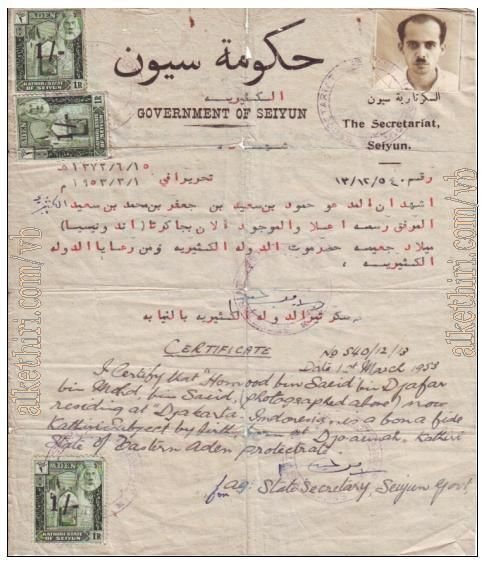 ADEN
1/-
KATHIRI STATE
OF SEIYUN
1R
حكومة سيون
الكثيريه
GOVERNMENT OF SEIYUN
السكرتارية سيون
The Secretariat,
Seiyun.
ADEN
1/-
KATHIRI STATE
OF SEIYUN
1R
شهاده
رقم ١٣/١٢/٥٤٠ تحريرا في ١٣٧٢/٦/١٥
١٩٥٣/٣/١ م
اشهد ان المدعو حمود بن سعيد بن جعفر بن محمد بن سعيد الكثيري
المرفق رسمه اعلا والموجود الان بجاكرتا (اندونيسيا)
ميلاد جعيمه حضرموت الدوله الكثيريه ومن رعايا الدوله
الكثيريه ،
سكرتير الدوله الكثيريه بالنيابه
CERTIFICATE No 540/12/13
Date 1st March 1953
I Certify that Homood bin Saeid bin Djafar
bin Mohd. bin Saeid, (photographed above) now
residing at Djakarta, Indonesia is a bona fide
Kathiri Subject by birth, born at Djoaimah, Kathiri
State of Eastern Aden protectrate.
for ag: State Secretary, Seiyun Govt,
ADEN
1/-
KATHIRI STATE
OF SEIYUN
1R
alkethiri.com/vb
alkethiri.com/vb